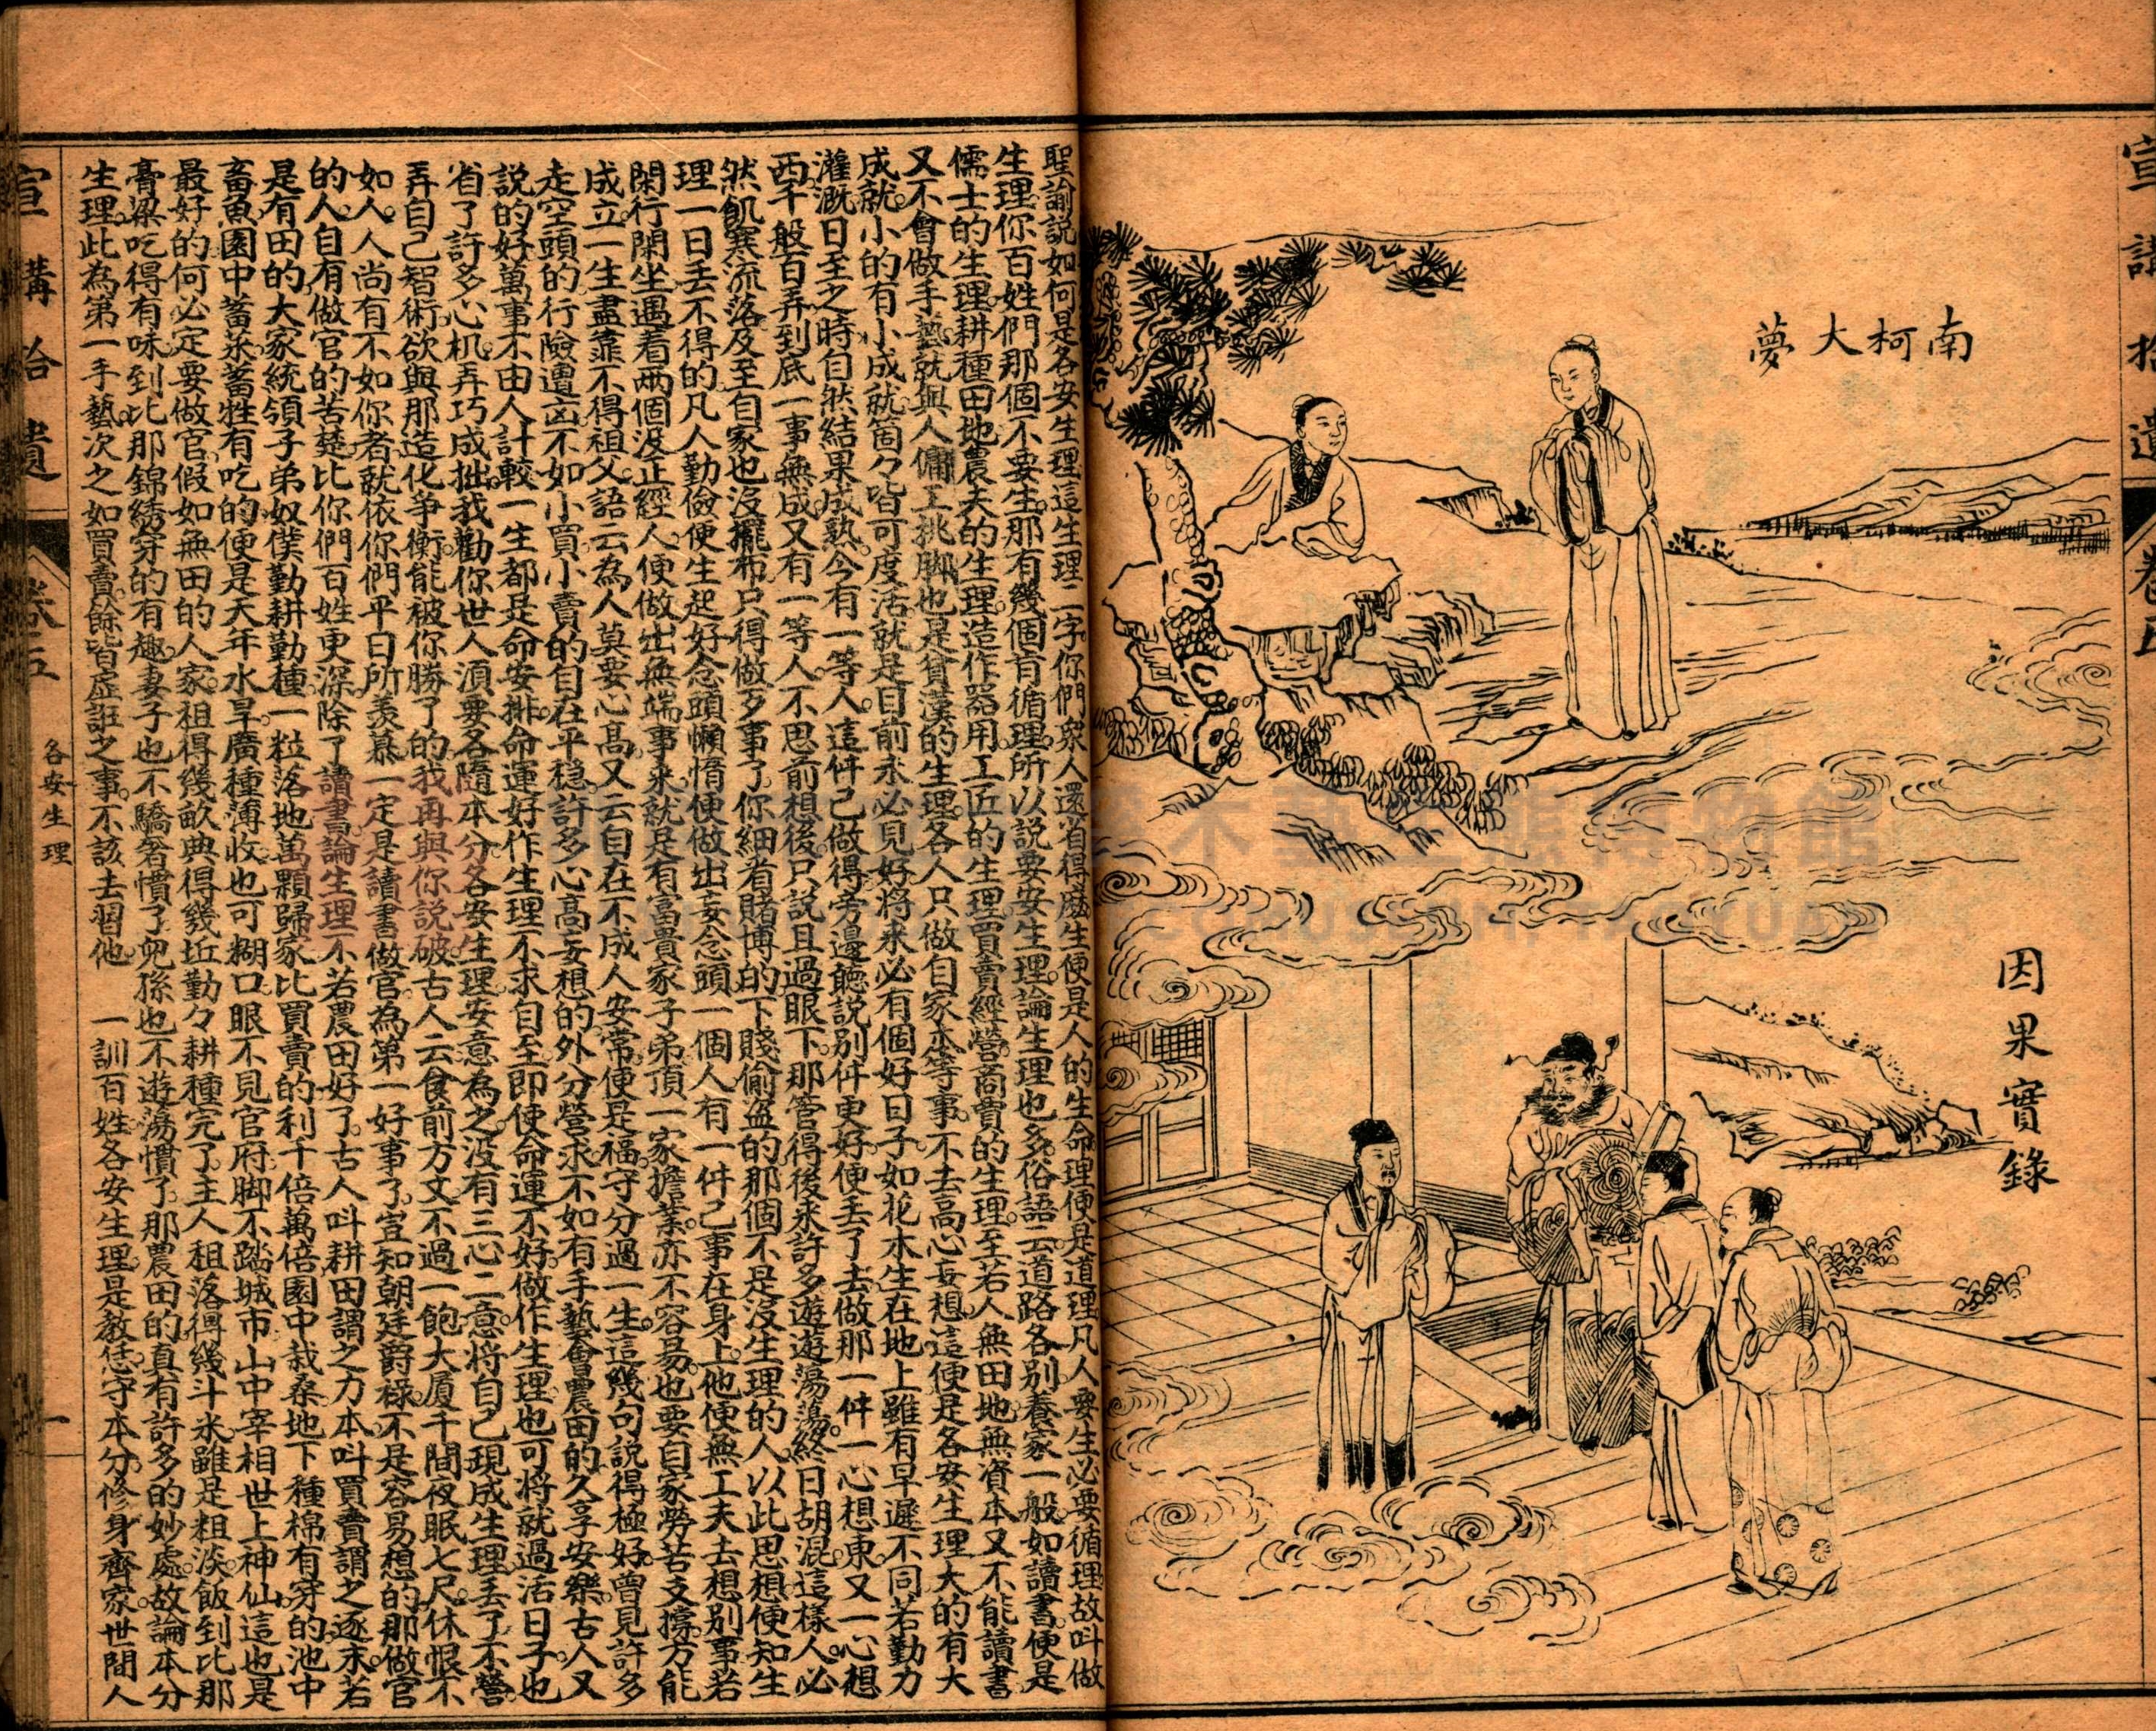 南柯大夢
因果實錄
聖諭説如何是各安生理這生理二字你們衆人還省得麽生便是人的生命理便是道理凡人要生必要循理故叫做
生理你百姓們那個不要生那有幾個肯循理所以説要安生理論生理也多俗語云道路各別養家一般如讀書便是
儒士的生理耕種田地農夫的生理造作器用工匠的生理買賣經營商賈的生理至若人無田地無資本又不能讀書
又不會做手藝就與人傭工挑脚也是貧漢的生理各人只做自家本等事不去高心妄想這便是各安生理大的有大
成就小的有小成就箇々皆可度活就是目前未必見好將來必有個好日子如花木生在地上雖有早遲不同若勤力
灌溉日至之時自然結果成熟今有一等人這件己做得旁邊聽説別件更好便丟了去做那一件一心想東又一心想
西千般百弄到底一事無成又有一等人不思前想後只説且過眼下那管得後來許多遊遊蕩蕩終日胡混這樣人必
然飢寒流落及至自家也沒擺布只得做歹事了你細看賭博的下賤偷盗的那個不是沒生理的人以此思想便知生
理一日丟不得的凡人勤儉便生起好念頭懶惰便做出妄念頭一個人有一件己事在身上他便無工夫去想別事若
閑行閑坐遇着两個沒正經人便做出無端事來就是有富貴家子弟頂一家擔業亦不容易也要自家勞苦支撐方能
成立一生盡靠不得祖父語云為人莫要心高又云自在不成人安常便是福守分過一生這幾句説得極好曾見許多
走空頭的行險遭凶不如小買小賣的自在平穩許多心高妄想的外分營求不如有手藝會農田的久享安樂古人又
説的好萬事不由人計較一生都是命安排命運好作生理不求自至即使命運不好做作生理也可將就過活日子也
省了許多心机弄巧成拙我勸你世人須要各隨本分各安生理安意為之沒有三心二意將自己現成生理丟了不營
弄自己智術欲與那造化争衡能被你勝了的我再與你説破古人云食前方丈不過一飽大厦千間夜眠七尺休恨不
如人人尚有不如你者就依你們平日所羡慕一定是讀書做官為第一好事了豈知朝廷爵禄不是容易想的那做官
的人自有做官的苦楚比你們百姓更深除了讀書論生理不若農田好了古人叫耕田謂之力本叫買賣謂之逐末若
是有田的大家統領子弟奴僕勤耕勤種一粒落地萬顆歸家比買賣的利千倍萬倍園中栽桑地下種棉有穿的池中
畜魚園中蓄菜蓄牲有吃的便是天年水旱廣種薄收也可糊口眼不見官府脚不踏城市山中宰相世上神仙這也是
最好的何必定要做官假如無田的人家祖得幾畝典得幾坵勤々耕種完了主人租落得幾斗米雖是粗淡飯到比那
膏粱吃得有味到比那錦綉穿的有趣妻子也不驕奢慣了兒孫也不遊蕩慣了那農田的真有許多的妙處故論本分
生理此為第一手藝次之如買賣餘皆虛誑之事不該去習他　一訓百姓各安生理是教恁守本分修身齊家世間人
宣講拾遺
卷五
各安生理
一